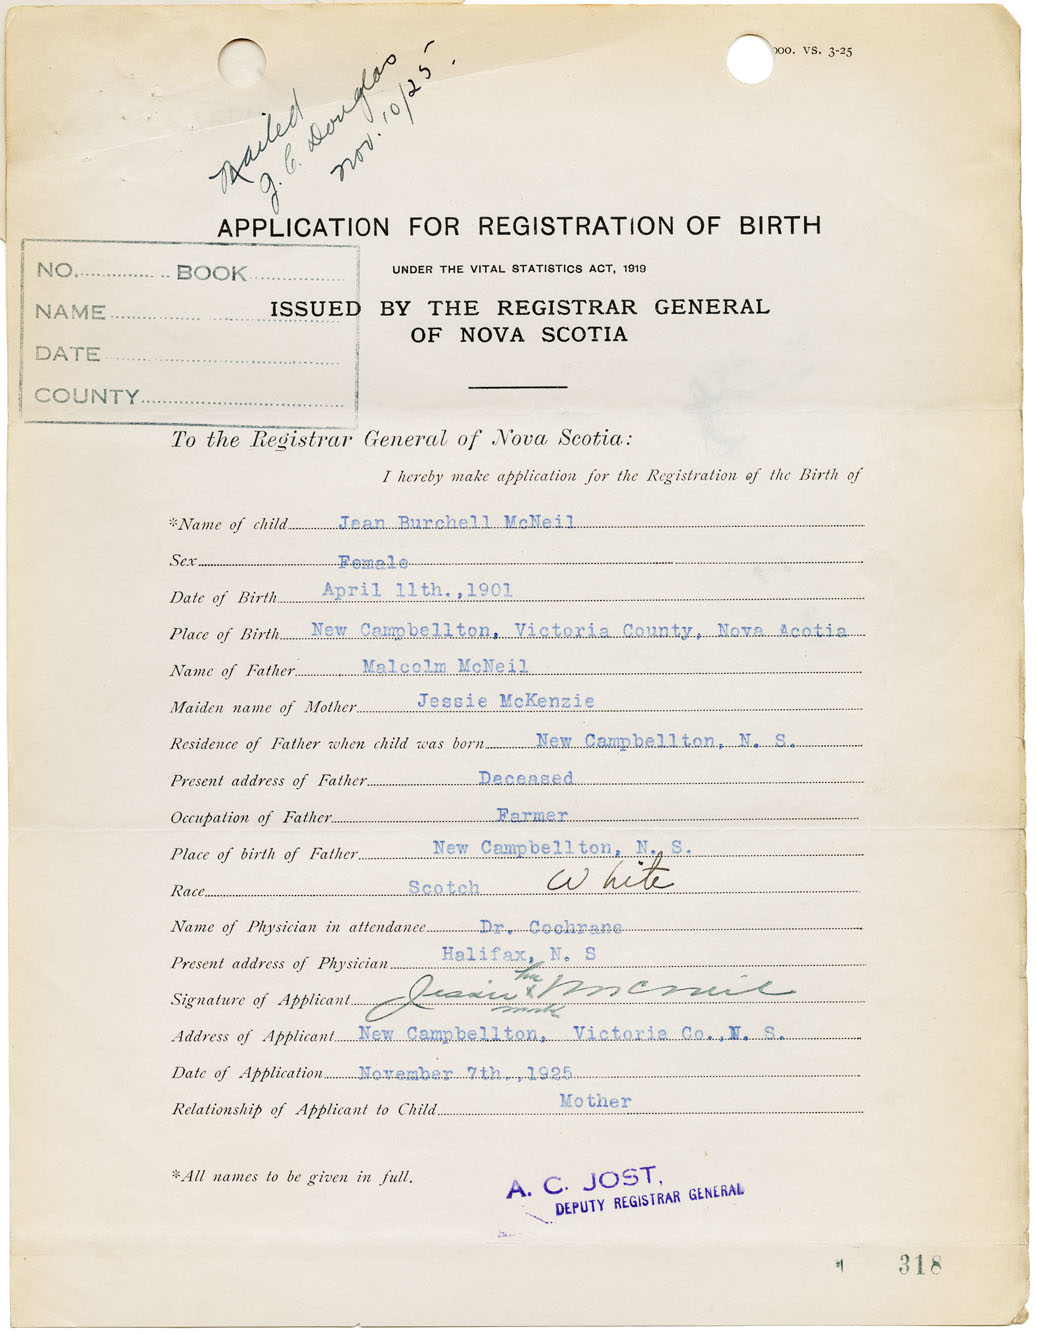 000. VS. 3-25
Mailed
J. C. Douglas
Nov. 10/25.
APPLICATION FOR REGISTRATION OF BIRTH
UNDER THE VITAL STATISTICS ACT, 1919
ISSUED BY THE REGISTRAR GENERAL
OF NOVA SCOTIA
NO. BOOK
NAME
DATE
COUNTY
To the Registrar General of Nova Scotia:
I hereby make application for the Registration of the Birth of
*Name of child Jean Burchell McNeil
Sex Female
Date of Birth April 11th.,1901
Place of Birth New Campbellton, Victoria County, Nova Acotia
Name of Father Malcolm McNeil
Maiden name of Mother Jessie McKenzie
Residence of Father when child was born New Campbellton, N. S.
Present address of Father Deceased
Occupation of Father Farmer
Place of birth of Father New Campbellton, N. S.
Race Scotch White
Name of Physician in attendance Dr. Cochrane
Present address of Physician Halifax, N. S
Signature of Applicant Jessie her x mark McNeil
Address of Applicant New Campbellton, Victoria Co., N. S.
Date of Application November 7th.,1925
Relationship of Applicant to Child Mother
*All names to be given in full.
A. C. JOST,
DEPUTY REGISTRAR GENERAL
318